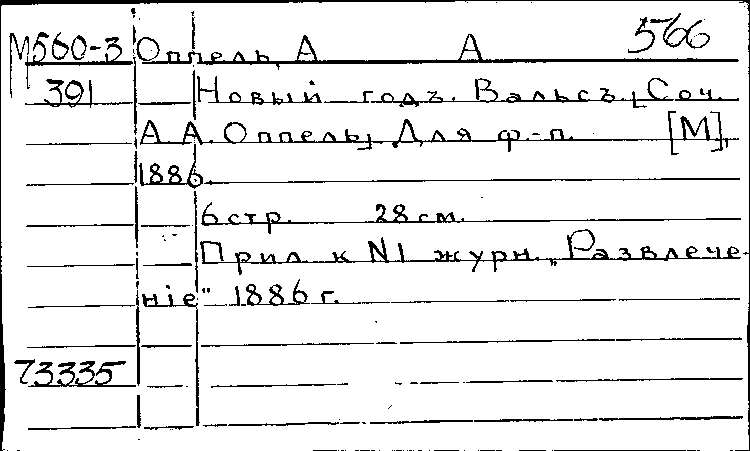 М560-3 Оппель, А А 566
391 Новый годъ. Вальсъ. [Соч.
А. А. Оппель]. Для ф.-п. [М],
1886.
6 стр. 28 см.
Прил. к N1 журн. „Развлече-
ніе" 1886 г.
73335